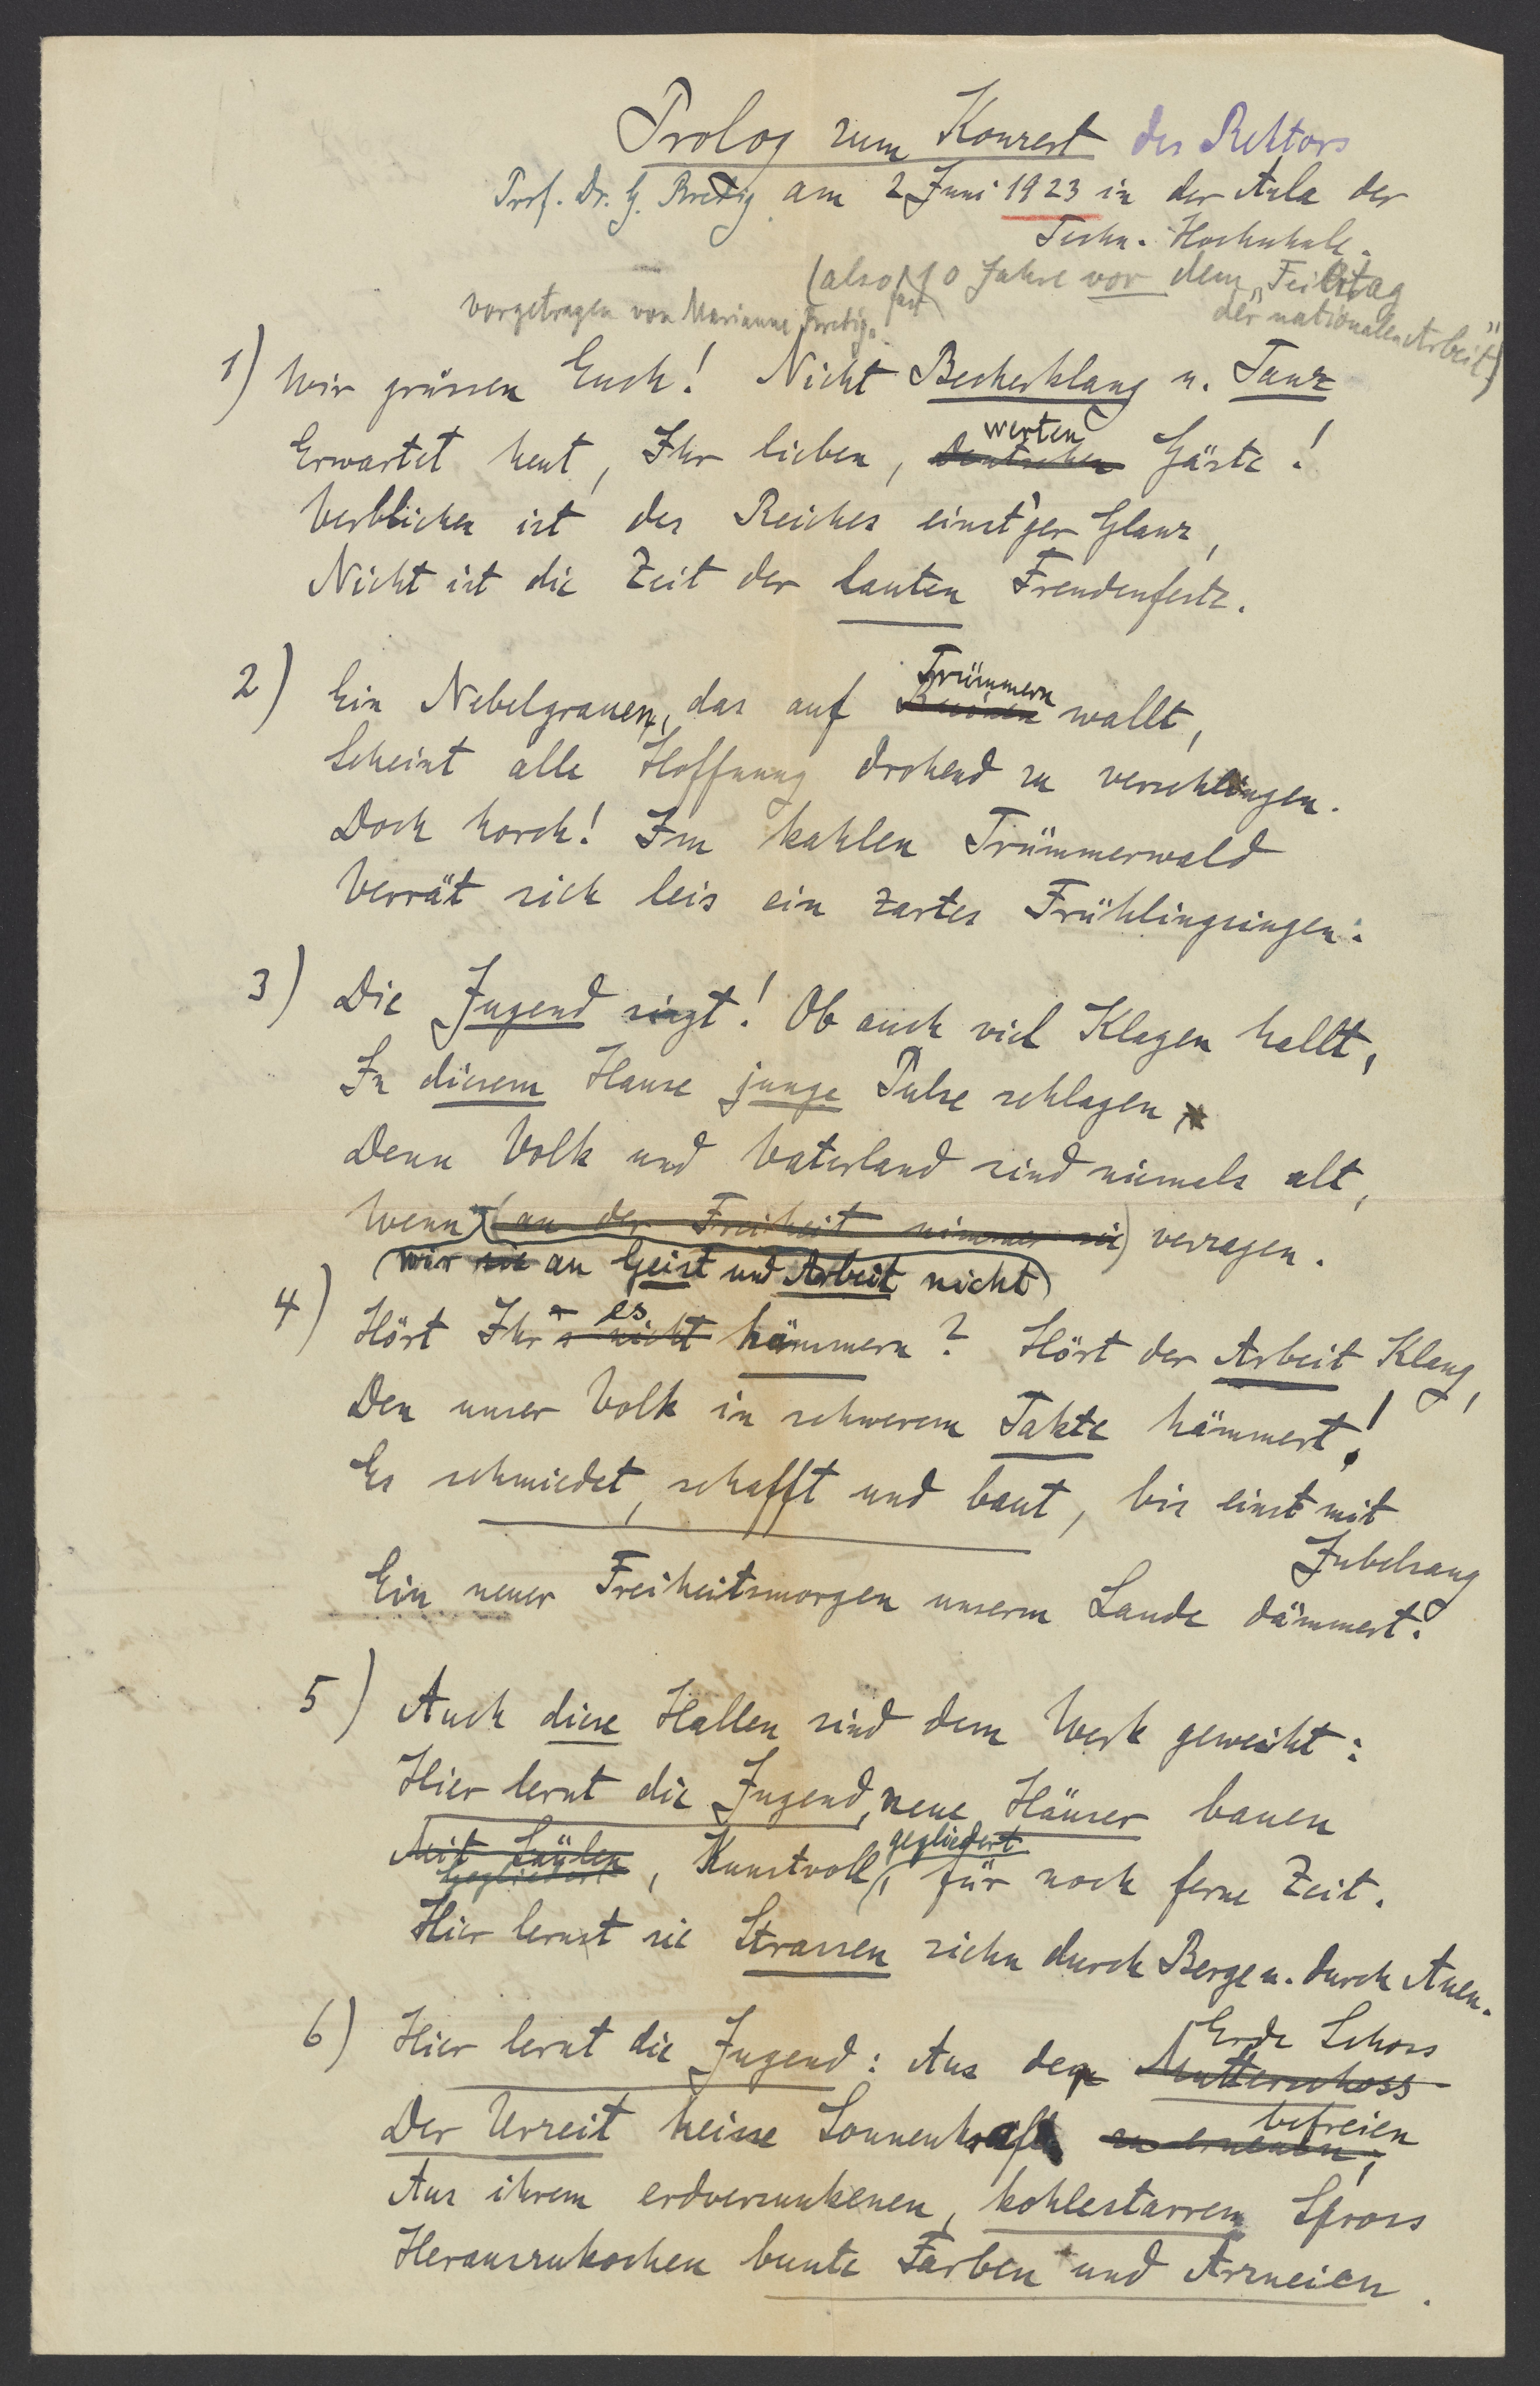 Prolog zum Konzert des Rektors
Prof. Dr. G. Bredig am 2 Juni 1923 in der Aula der
Techn. Hochschule.
(also fast 10 Jahre vor dem „Feiertag
der nationalen Arbeit")
vorgetragen von Marianne Bredig.
1) Wir grüssen Euch! Nicht Becherklang u. Tanz
werten
Erwartet heut, Ihr lieben, deutschen Gäste!
Verblichen ist des Reiches einst'ger Glanz,
Nicht ist die Zeit der lauten Freudenfeste.
Trümmern
2) Ein Nebelgrauen, das auf Ruinen wallt,
Scheint alle Hoffnung drohend zu verschlingen.
Doch horch! Im kahlen Trümmerwald
Verrät sich leis ein zartes Frühlingsingen:
3) Die Jugend singt! Ob auch viel Klagen hallt,
In diesem Hause junge Pulse schlagen
Denn Volk und Vaterland sind niemals alt,
Wenn (an der Freiheit nimmer sie) verzagen.
(wir sie an Geist und Arbeit nicht)
es
4) Hört Ihr's nicht hämmern? Hört der Arbeit Klang,
Den unser Volk in schwerem Takte hämmert!
Es schmiedet, schafft und baut, bis einst mit
Jubelsang
Ein neuer Freiheitsmorgen unserm Lande dämmert.
5) Auch diese Hallen sind dem Werk geweiht:
Hier lernt die Jugend, neue Häuser bauen
gegliedert
Mit Säulen, Kunstvoll, für noch ferne Zeit.
Gegliedert
Hier lernt sie Strassen ziehn durch Berge u. durch Auen.
Erde Schoss
6) Hier lernt die Jugend: Aus der Mutterschoss
befreien
Der Urzeit heisse Sonnenkraft zu erneuen,
Aus ihrem erdversunkenen, kohlestarrem Spross
Herauszukochen bunte Farben und Arzneien.